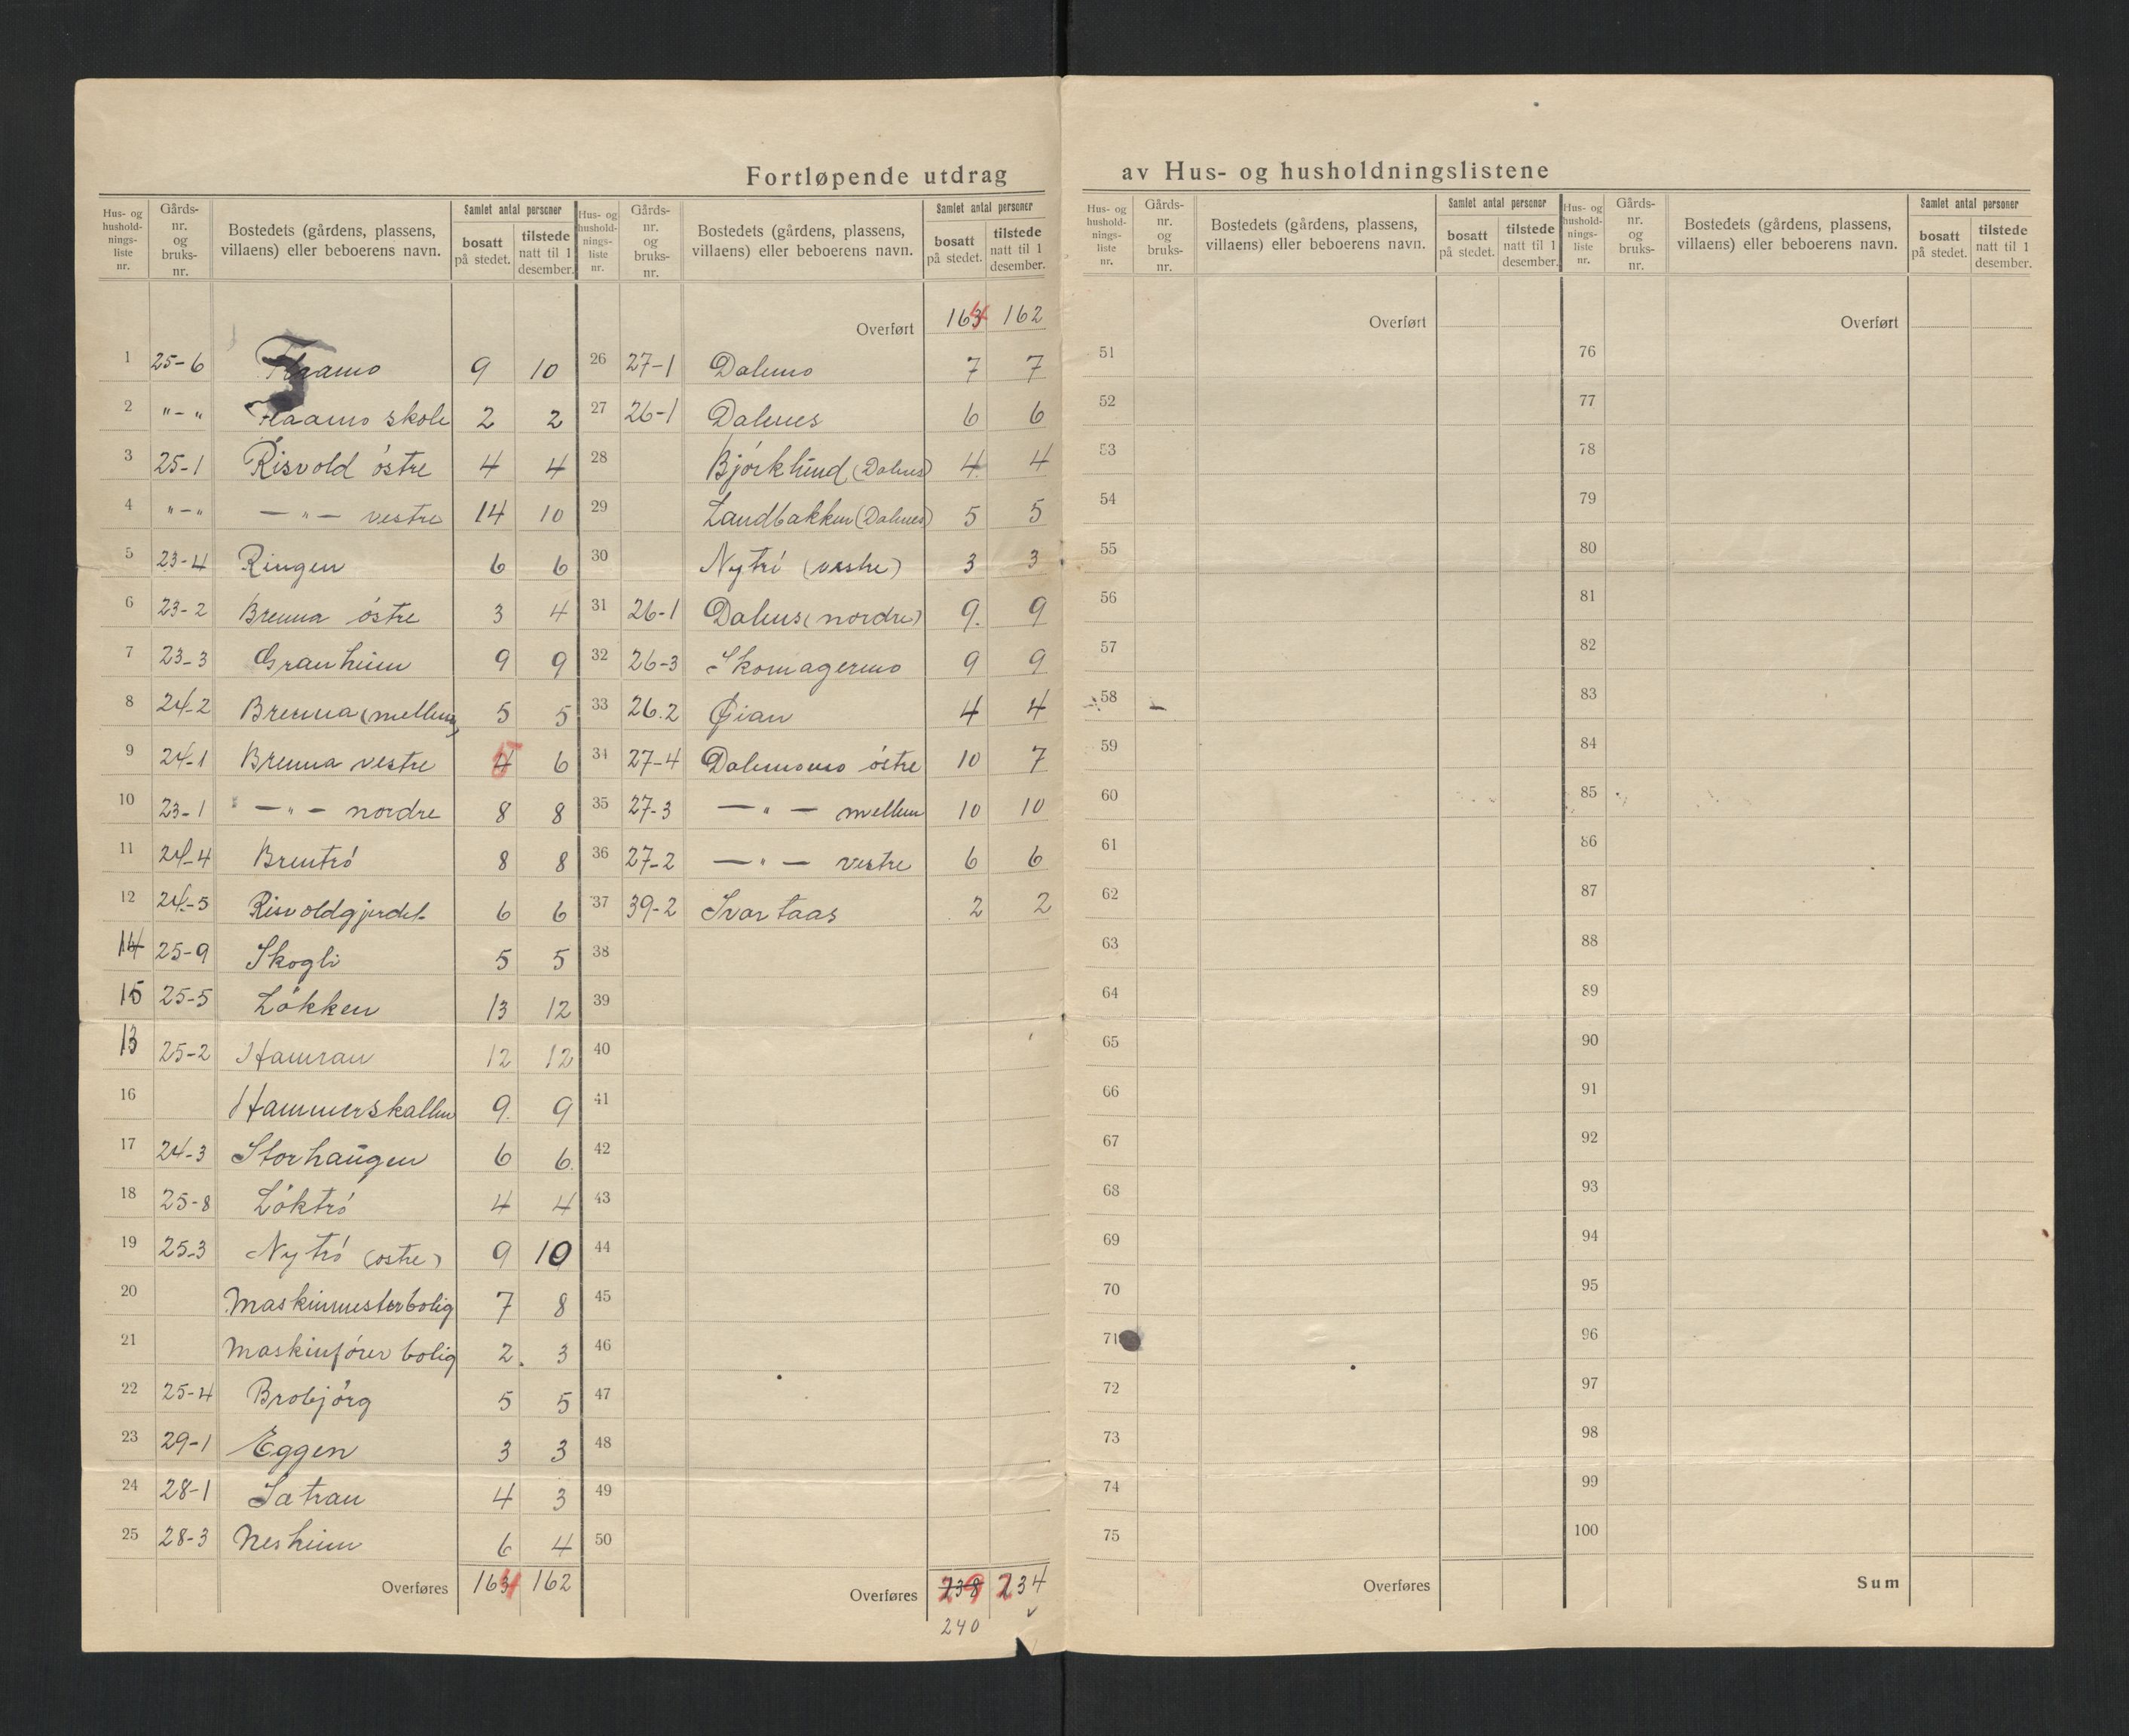 Fortløpende utdrag av Hus- og husholdningslistene
Hus- og hushold-nings-liste nr. | Gårds-nr. og bruks-nr. | Bostedets (gårdens, plassens, villaens) eller beboerens navn. | Samlet antal personer | bosatt på stedet. | tilstede natt til 1 desember.
1 25-6 Flaamo 9 10
2 "-" Flaamo skole 2 2
3 25-1 Risvold östre 4 4
4 "-" —"— vestre 14 10
5 23-4 Ringen 6 6
6 23-2 Brenna östre 3 4
7 23-3 Granheim 9 9
8 24-2 Brenna (mellem) 5 5
9 24-1 Brenna vestre 5 6
10 23-1 —"— nordre 8 8
11 24-4 Brentrö 8 8
12 24-5 Risvoldgjerdet 6 6
14 25-9 Skogli 5 5
15 25-5 Lökken 13 12
13 25-2 Hamran 12 12
16 Hammerskallen 9. 9
17 24-3 Storhaugen 6 6.
18 25-8 Löktrö 4 4
19 25-3 Nytrö (östre) 9 10
20 Maskinmesterbolig 7 8
21 Maskinförer bolig 2. 3
22 25-4 Brobjörg 5 5
23 29-1 Eggen 3 3
24 28-1 Satran 4 3
25 28-3 Nesheim 6 4
Overføres 164 162
Hus- og hushold-nings-liste nr. | Gårds-nr. og bruks-nr. | Bostedets (gårdens, plassens, villaens) eller beboerens navn. | Samlet antal personer | bosatt på stedet. | tilstede natt til 1 desember.
Overført 164 162
26 27-1 Dalmo 7 7
27 26-1 Dalenes 6 6
28 Björklund (Dalenes) 4 4
29 Sandbakken (Dalenes) 5 5
30 Nytrö (vestre) 3 3
31 26-1 Dalenes (nordre) 9. 9
32 26-3 Skomagermo 9 9
33 26.2 Øian 4 4
34 27-4 Dalmomo östre 10 7
35 27-3 —"— mellem 10 10
36 27-2 —"— vestre 6 6
37 39-2 Svartaas 2 2
38
39
40
41
42
43
44
45
46
47
48
49
50
Overføres 238 234
240
Hus- og hushold-nings-liste nr. | Gårds-nr. og bruks-nr. | Bostedets (gårdens, plassens, villaens) eller beboerens navn. | Samlet antal personer | bosatt på stedet. | tilstede natt til 1 desember.
Overført
51
52
53
54
55
56
57
58
59
60
61
62
63
64
65
66
67
68
69
70
71
72
73
74
75
Overføres
Hus- og hushold-nings-liste nr. | Gårds-nr. og bruks-nr. | Bostedets (gårdens, plassens, villaens) eller beboerens navn. | Samlet antal personer | bosatt på stedet. | tilstede natt til 1 desember.
Overført
76
77
78
79
80
81
82
83
84
85
86
87
88
89
90
91
92
93
94
95
96
97
98
99
100
Sum